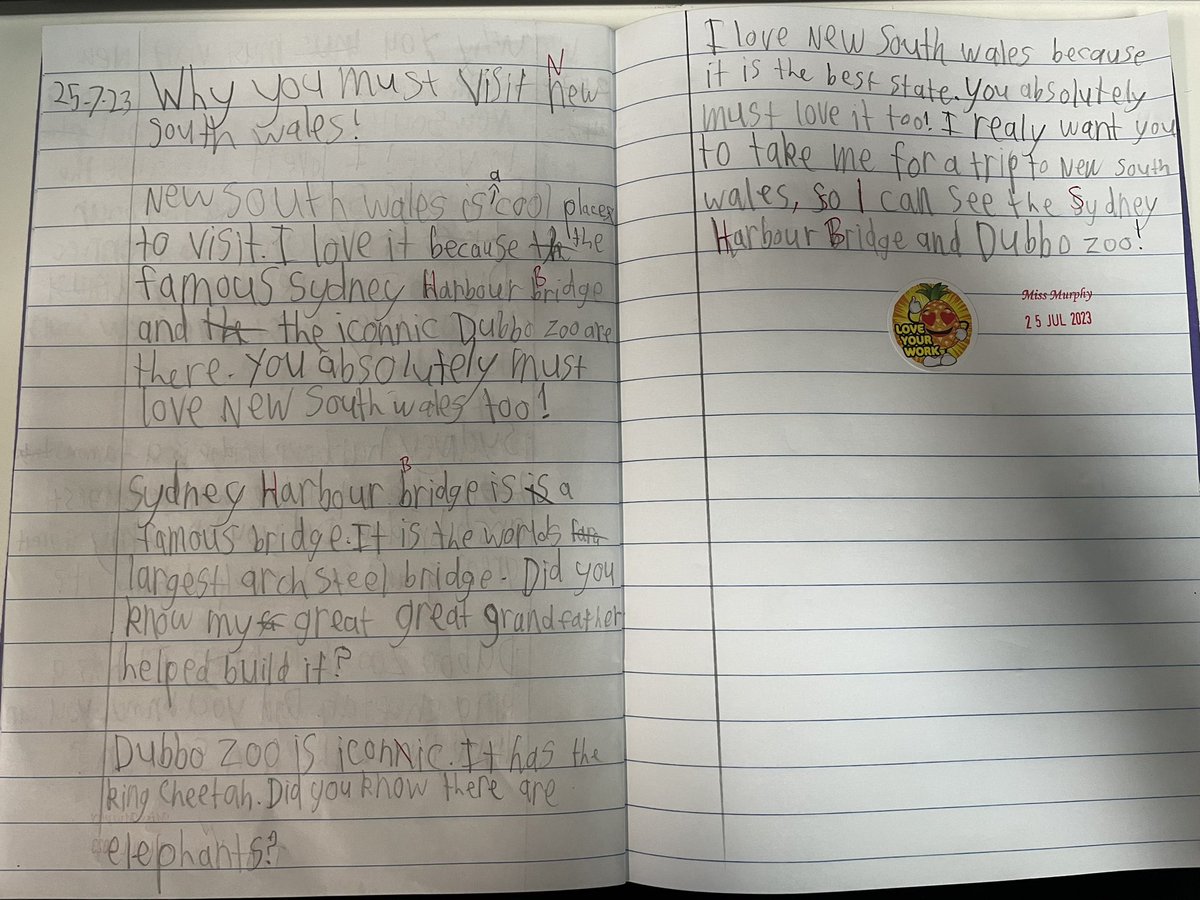 25-7-23 Why you must visit New
South Wales!
New South Wales is a cool places
to visit. I love it because the
famous Sydney Harbour Bridge
and the iconnic Dubbo Zoo are
there. You absolutely must
love New South Wales too!
Sydney Harbour Bridge is a
famous bridge. It is the worlds
largest arch steel bridge. Did you
know my great great grandfather
helped build it?
Dubbo Zoo is iconnic. It has the
king cheetah. Did you know there are
elephants?
I love New South Wales because
it is the best state. You absolutely
must love it too! I realy want you
to take me for a trip to New South
Wales, so I can see the Sydney
Harbour Bridge and Dubbo Zoo!
LOVE
YOUR
WORK
Miss Murphy
25 JUL 2023